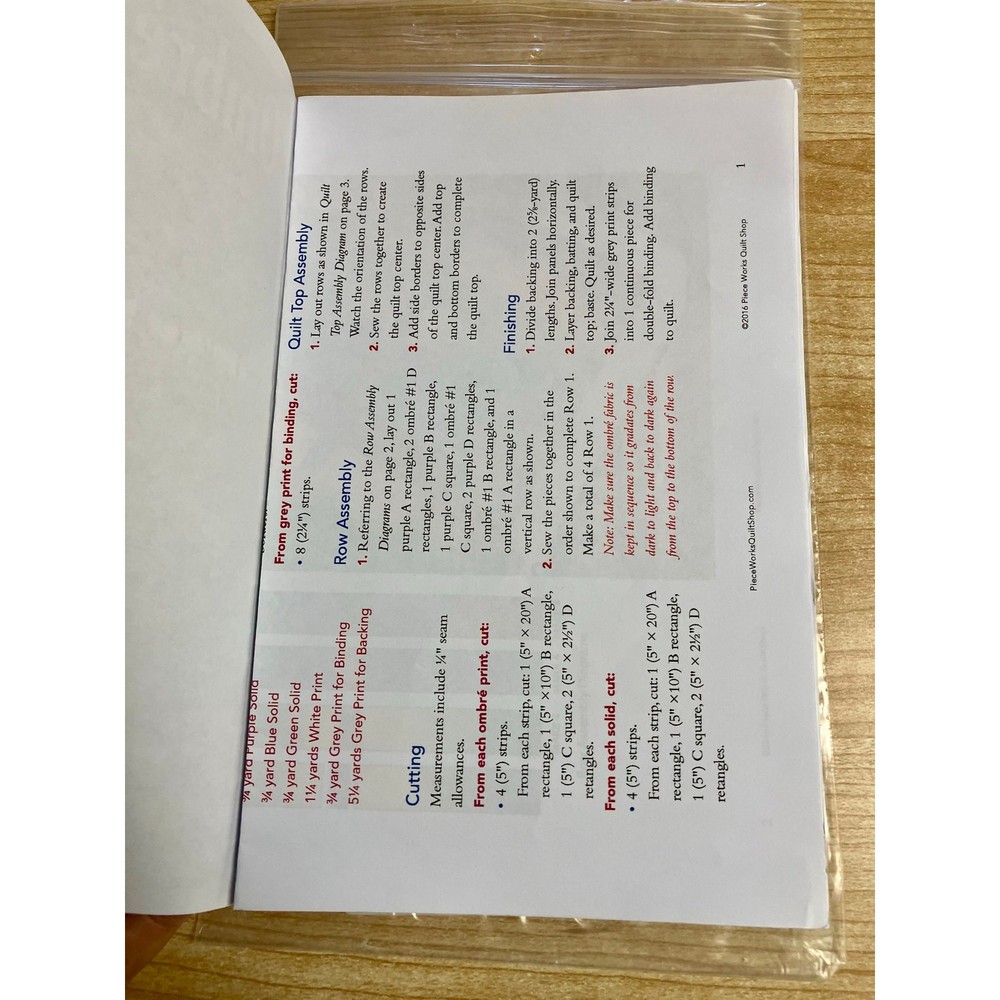 ¾ yard Purple Solid
¾ yard Blue Solid
¾ yard Green Solid
1¼ yards White Print
¾ yard Grey Print for Binding
5¼ yards Grey Print for Backing
Cutting
Measurements include ¼" seam
allowances.
From each ombré print, cut:
• 4 (5") strips.
From each strip, cut: 1 (5" × 20") A
rectangle, 1 (5" ×10") B rectangle,
1 (5") C square, 2 (5" × 2½") D
retangles.
From each solid, cut:
• 4 (5") strips.
From each strip, cut: 1 (5" × 20") A
rectangle, 1 (5" ×10") B rectangle,
1 (5") C square, 2 (5" × 2½") D
retangles.
From grey print for binding, cut:
• 8 (2¼") strips.
Row Assembly
1. Referring to the Row Assembly
Diagrams on page 2, lay out 1
purple A rectangle, 2 ombré #1 D
rectangles, 1 purple B rectangle,
1 purple C square, 1 ombré #1
C square, 2 purple D rectangles,
1 ombré #1 B rectangle, and 1
ombré #1 A rectangle in a
vertical row as shown.
2. Sew the pieces together in the
order shown to complete Row 1.
Make a total of 4 Row 1.
Note: Make sure the ombré fabric is
kept in sequence so it gradates from
dark to light and back to dark again
from the top to the bottom of the row.
Quilt Top Assembly
1. Lay out rows as shown in Quilt
Top Assembly Diagram on page 3.
Watch the orientation of the rows.
2. Sew the rows together to create
the quilt top center.
3. Add side borders to opposite sides
of the quilt top center. Add top
and bottom borders to complete
the quilt top.
Finishing
1. Divide backing into 2 (2⅝-yard)
lengths. Join panels horizontally.
2. Layer backing, batting, and quilt
top; baste. Quilt as desired.
3. Join 2¼"-wide grey print strips
into 1 continuous piece for
double-fold binding. Add binding
to quilt.
PieceWorksQuiltShop.com
©2016 Piece Works Quilt Shop
1